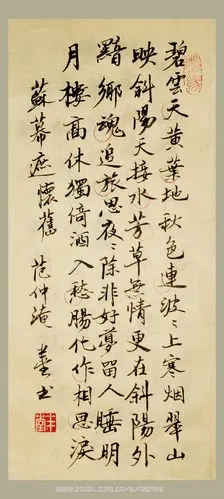 碧雲天黃葉地秋色連波々上寒烟翠山
映斜陽天接水芳草無情更在斜陽外
黯鄉魂追旅思夜々除非好夢留人睡明
月樓高休獨倚酒入愁腸化作相思淚
蘇幕遮懷舊 范仲淹 书